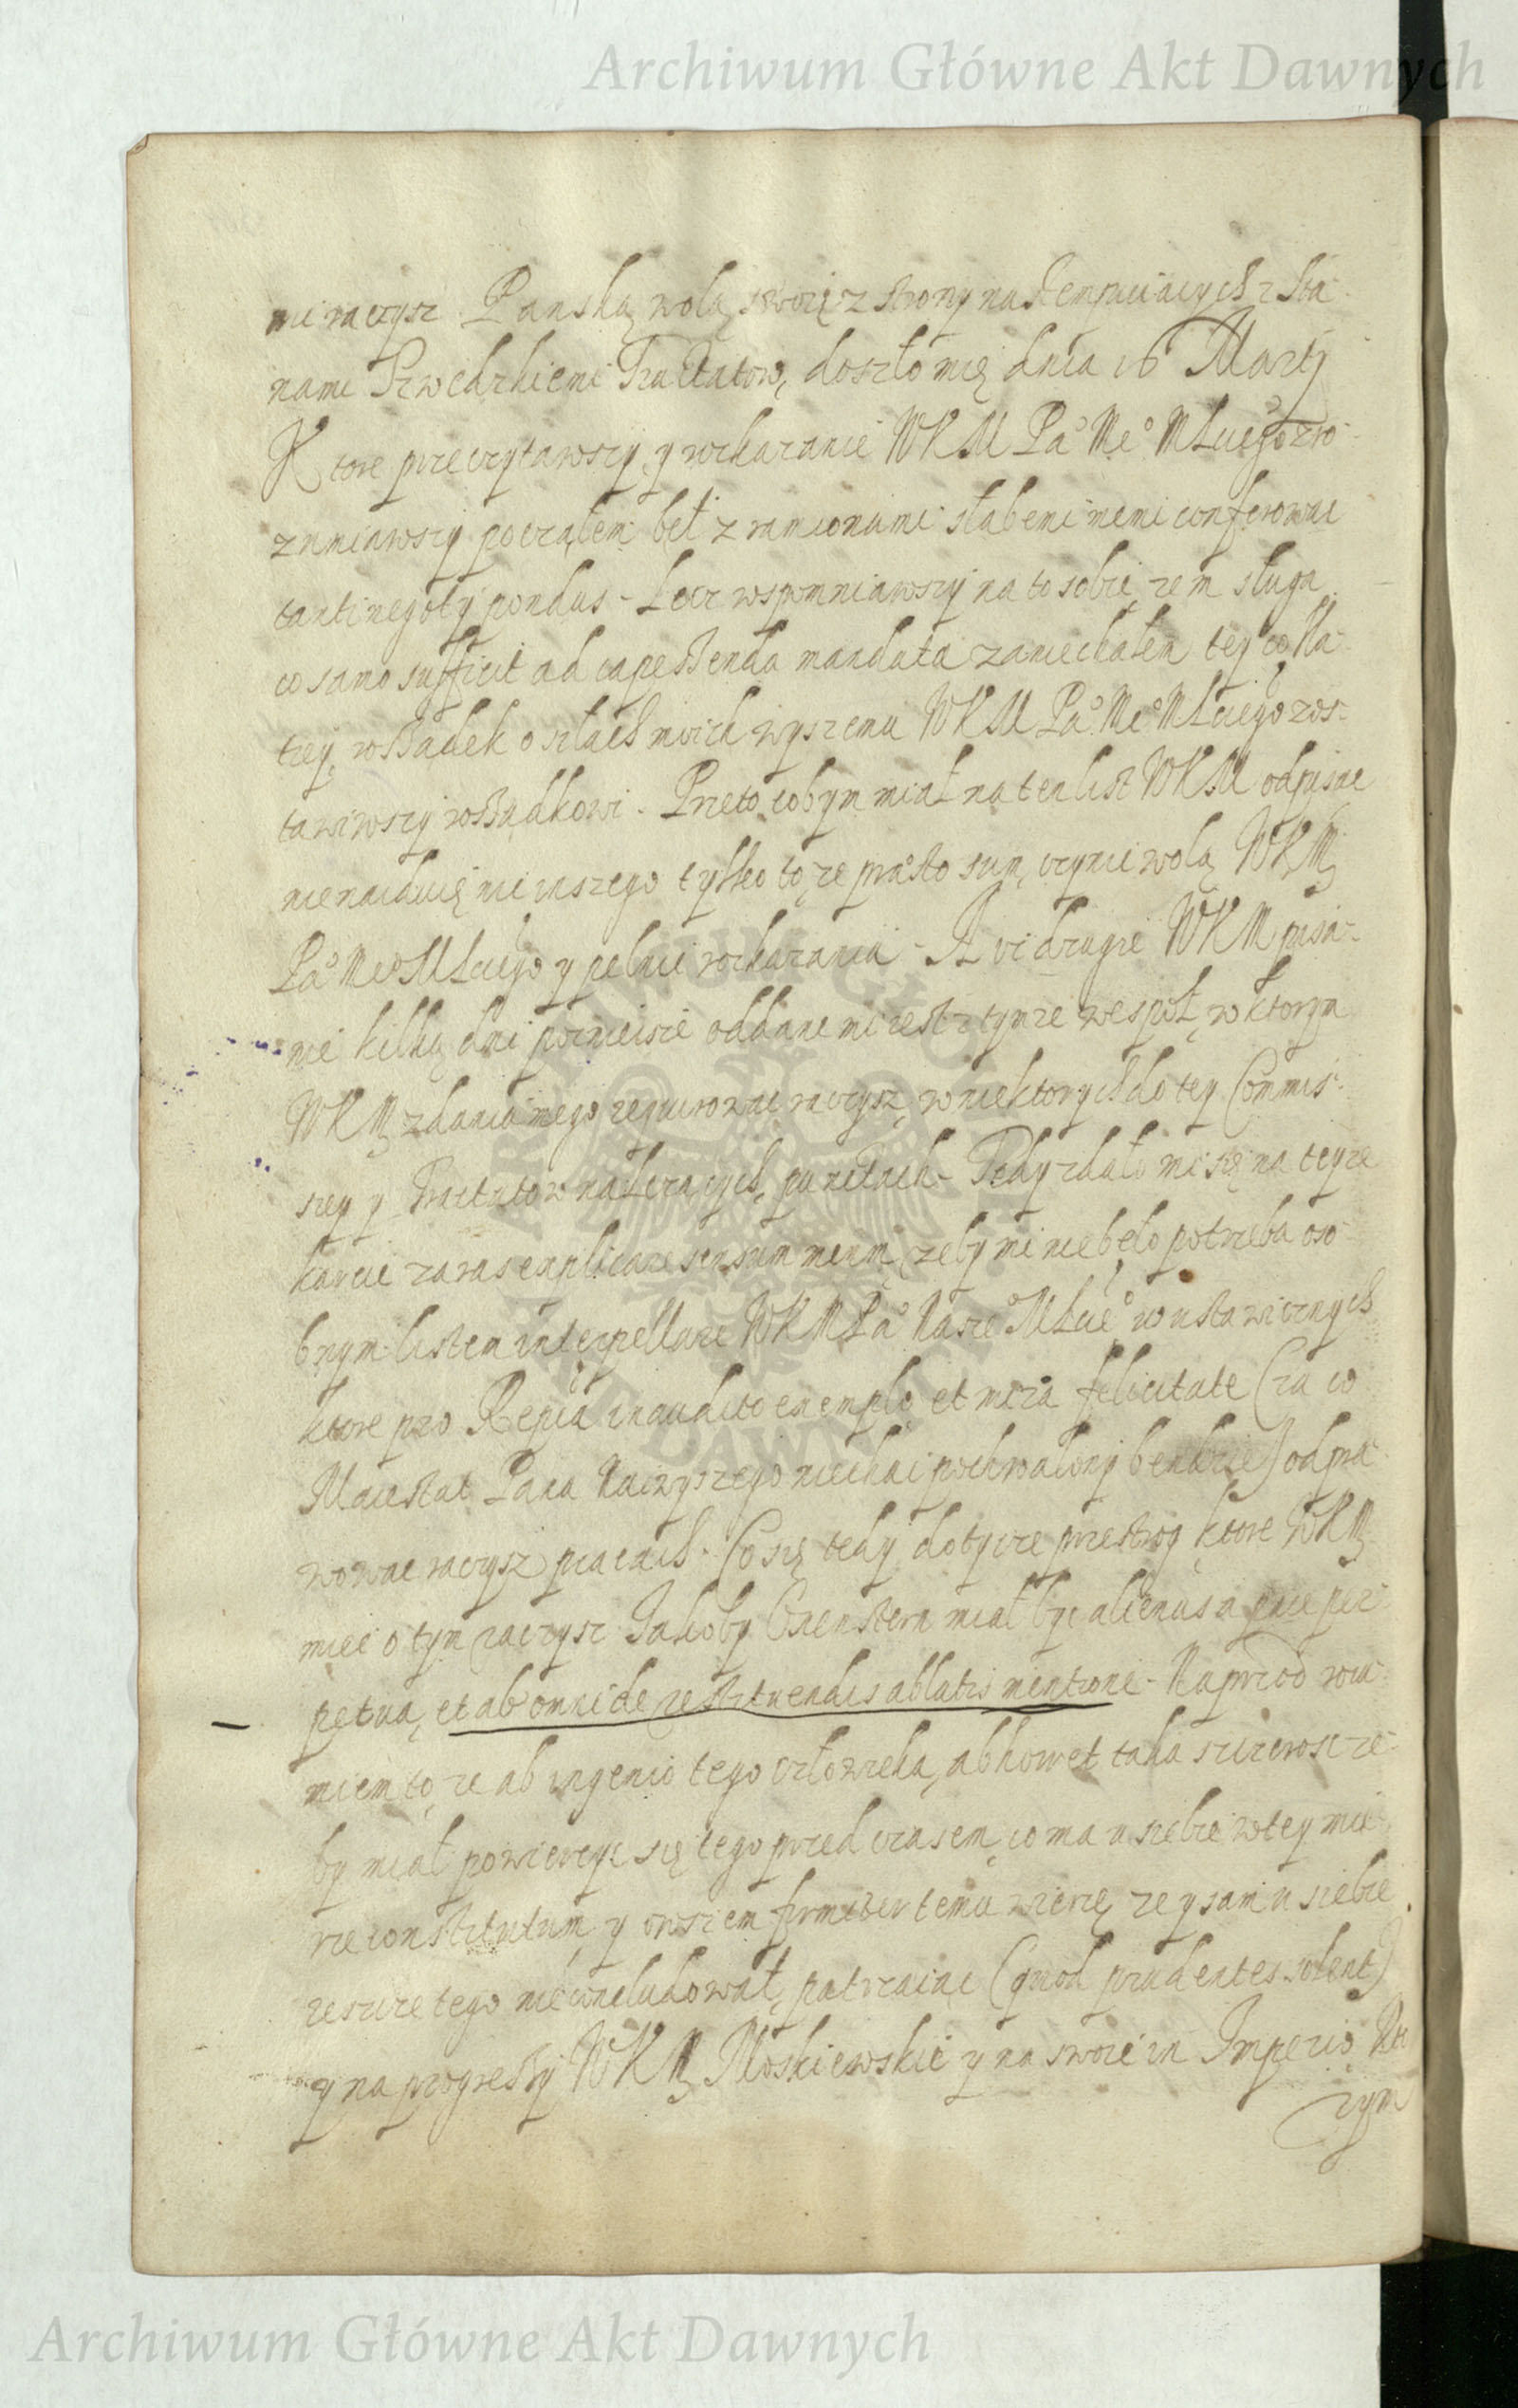 Archiwum Główne Akt Dawnych
mi raczysz Panską wolą swoię z strony nastempuiących z Sta-
nami Szwedzkiemi Tractatow, doszło mię dnia 16 Martij
Ktore przeczytawszy, y rozkazanie WKM Pa° Me° MLciwego zro-
zumiawszy począłem beł z ramionami słabemi memi conferowac
tanti negotij pondus - Lecz wspomniawszy na to sobie zem sługa
co samo sufficit ad capessenda mandata zaniechałem tey
trzy, rossądek o siłach moich wyszemu WKM Pa° Me° MLciwego zos-
tawiwszy rossądkowi - Przeto cobym miał na ten list WKM odpisac
nienaiduię nic inszego tylko to, ze praesto sum, czynic wolą WKM
Pa° Me° MLciwego y pełnic rozkazania - A iz drugie WKM pisa-
nie kilką dni poznieisze oddane mi iest z tymze wespoł, w ktorym
WKM zdania mego requirowac raczysz, w niektorych do tey Commis-
siey y Tractatow nalezących, punctach - Tedy zdało mi się na teyze
karcie zaraz explicare sensum meum, zeby mi niebeło potrzeba oso-
bnym listem interpellare WKM Pa° Nasze° MLcie° w ustawicznych
ktore pro Repca inaudito exemplo, et mira felicitate (za co
Maiestat Pana Naiwyszego niechai pochwalony bendzie) odpra-
wowac raczysz pracach - Co się tedy dotycze przestrog ktore WKM
miec o tym raczysz Jakoby Oxenstern miał byc alienus a pace per-
petua, et ab omni de restituendis ablatis mentione - Naprzod rozu-
miem to, ze ab ingenio tego człowieka, abhorret taka szczerosc ze-
by miał powierzyc się tego przed czasem, co ma u siebie w tey mie-
rze constitutum, y owszem firmiter temu wierzę, ze y sam u siebie
ieszcze tego nie concludował, patrzaiąc (quod prudentes solent)
y na progressy WKM Moskiewskie y na swoie in Imperio
zym
Archiwum Główne Akt Dawnych